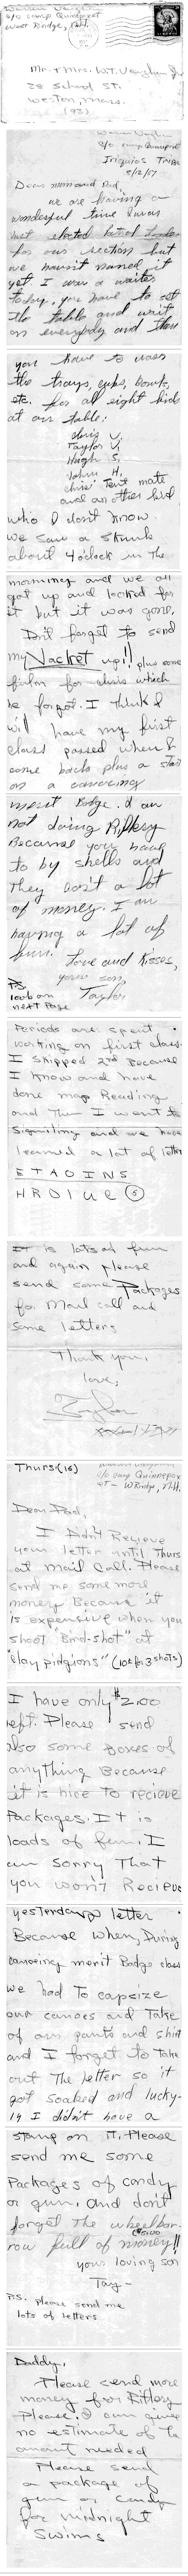 Warren Vaughn
c/o Camp Quinnepet
West Ridge, N.H.
Mr. + Mrs. W.T. Vaughn Jr
28 School St.
Weston, Mass.
(93)
c/o Camp Quinnepet
Iroquios Tribe
8/12/57
Dear mom and Dad,
we are having a
wonderful time I was
just elected
for our section but
we haven't named it
yet I was a waiter
today, you have to set
the table and wait
on everybody and then
you have to wash
the trays, cups, bowls,
etc. for all eight kids
at our table:
Chris V,
Taylor V,
Hugh S,
John H,
Chris' tent mate
and an other kid
who I don't know
we saw a skunk
about 4 oclock in the
morning and we all
got up and looked for
it but it was gone,
Don't forget to send
my Jacket up!! plus some
film for Chris which
he forgot. I think I
will have my first
class passed when I
come back plus a start
on a canoeing
merit Badge. I am
not doing Riflery
Because you have
to by shells and
they cost a lot
of money. I am
having a lot of
fun. Love and Kisses,
your son,
Taylor
PS
look on
next Page
Periods are spent
working on first class.
I skipped 2nd Because
I know and have
done map Reading
and Then I went to
Signiling and we have
learned a lot of letters
E T A O I N S
H R D L U C (5)
It is lots of fun
and again please
send some Packages
for Mail call and
some letters
Thank you,
love,
Taylor
Thurs (16)
c/o Camp Quinnepet
W Ridge, N.H.
Dear Dad,
I Didn't Recieve
your letter until Thurs
at Mail Call. Please
send me some more
money Because it
Is expensive when you
shoot "Bird-shot" at
"Clay pidgions" (10¢ for 3 shots)
I have only $2.00
left. Please send
also some Boxes of
anything Because
it is nice to recieve
Packages. It is
loads of fun. I
am sorry That
you won't Recieve
yesterday's letter
Because when, During
canoeing merit Badge class
we had To capsize
our canoes and Take
of our pants and shirt
and I forget to take
out The letter so it
got soaked and lucky-
ly I didn't have a
stamp on it. Please
send me some
Packages of candy
or gum, and don't
forget The wheelbar-
row full of money!!
your loving son
Tay-
P.S. Please send me
lots of letters
Daddy,
Please send more
money for Riflery
Please. I can give
no estimate of the
amount needed
Please send
a package of
gum or candy
for midnight
Swims